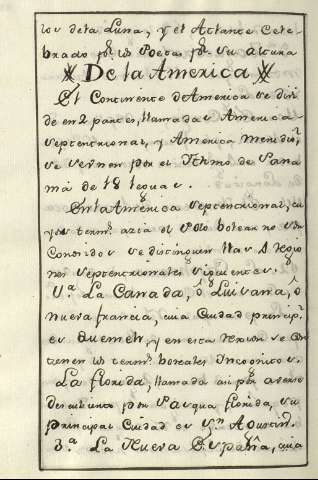 los de la Luna, y el Atlante Cele-
brado pr. los Poetas pr. su altura
De la America
El Continente de America se divi
de en 2 partes, llamadas America
Septentrional, y America Meridiol.
se unen por el Ithmo de Pana
má de 18 leguas.
En la América Septentrional, cu
yos termos. azia el Polo boreal no son
Conocidos se distinguen llas 5 regio
nes Septentrionales siguientes.
La Canada, ó Luisiana, ó
nueva francia, cuia Ciudad principl.
es Quebek, y en esta region se Con
tienen los termos. boreales Incognitos.
La florida, llamada asi por averse
descubierto por Pasqua florida, su
principal Ciudad es Sn. Agustin.
3.a La Nueva España, cuia